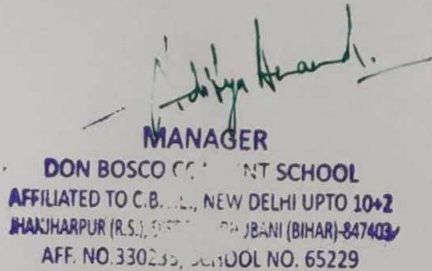 Aditya Anand.
MANAGER
DON BOSCO NT SCHOOL
AFFILIATED TO C.B. NEW DELHI UPTO 10+2
JHANJHARPUR (R.S.), (BIHAR)-847403
AFF. NO. SCHOOL NO. 65229